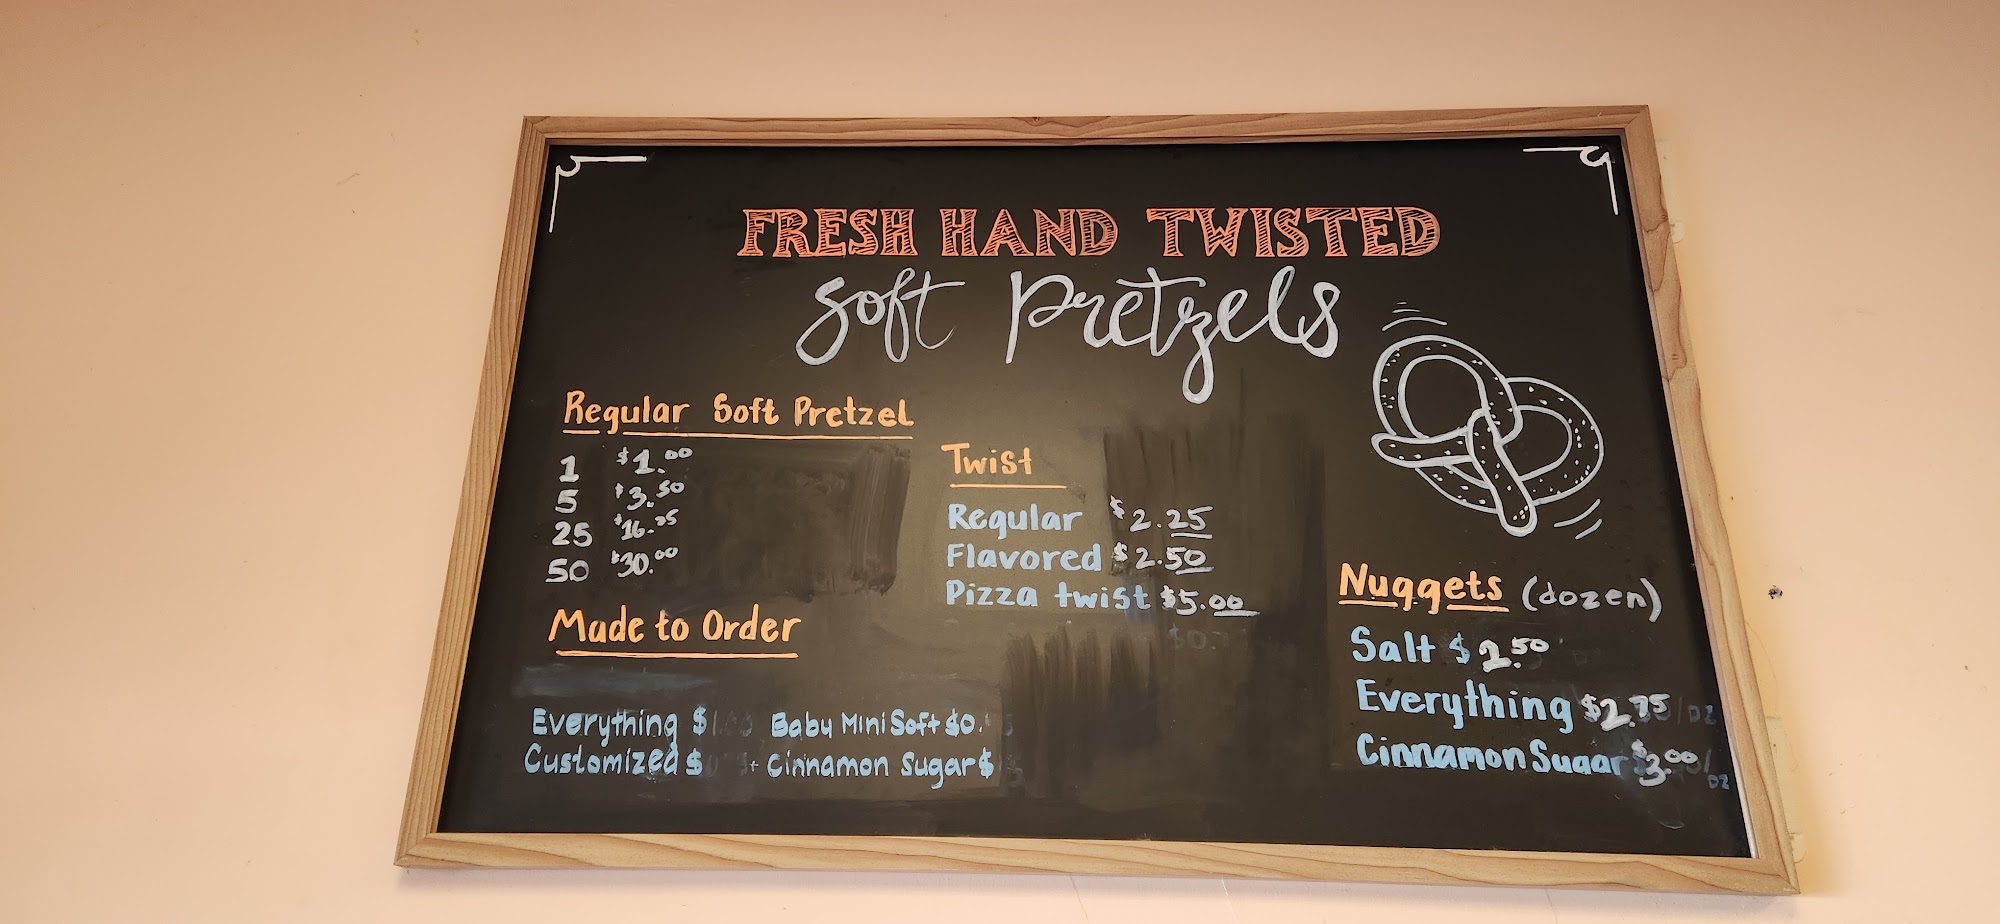 FRESH HAND TWISTED
Soft Pretzels
Regular Soft Pretzel
1 $1.00
5 $3.50
25 $16.25
50 $30.00
Made to Order
Everything $1. Baby Mini Soft $0.
Customized $ + Cinnamon Sugar $
Twist
Regular $2.25
Flavored $2.50
Pizza twist $5.00
Nuggets (dozen)
Salt $2.50
Everything $2.75
Cinnamon Sugar $3.00